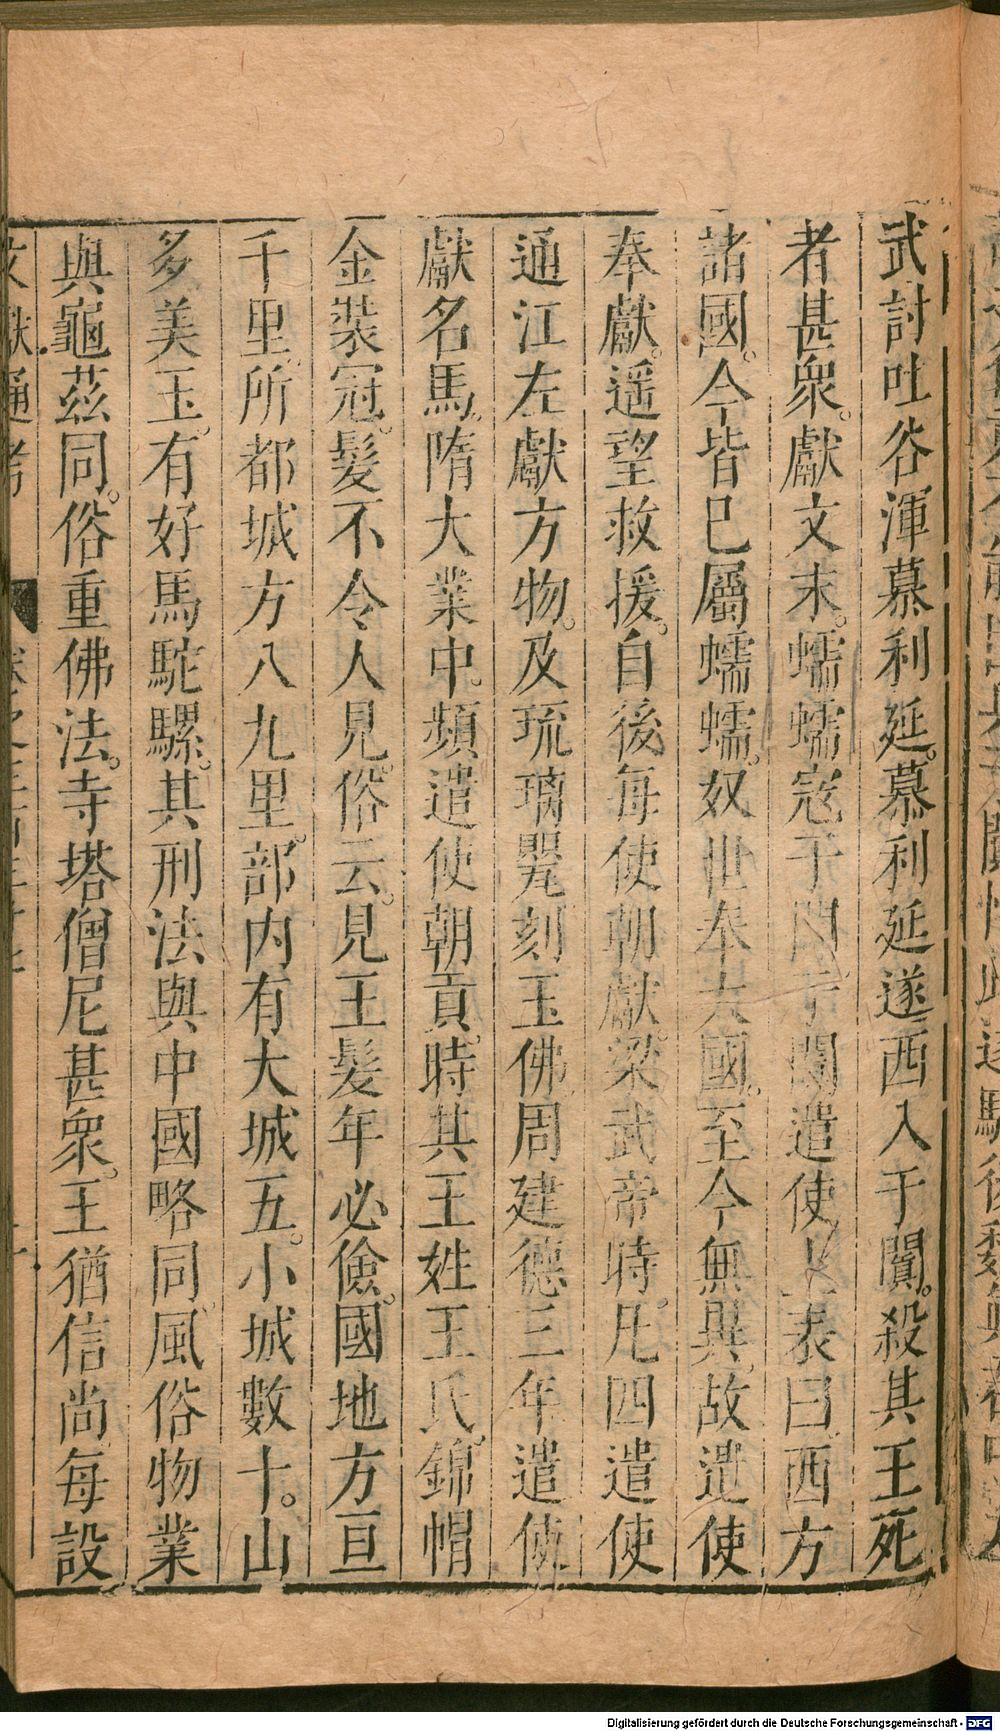 武討吐谷渾慕利延。慕利延遂西入于闐。殺其王死
者甚衆。獻文末。蠕蠕寇于闐于闐遣使上表曰西方
諸國。今皆已屬蠕蠕。奴世奉大國。至今無異。故遣使
奉獻。遥望救援。自後每使朝獻。梁武帝時。凡四遣使
通江左獻方物。及琉璃甖刻玉佛周建德三年遣使
獻名馬。隋大業中。頻遣使朝貢。時其王姓王氏。錦帽
金裝冠。髮不令人見。俗云。見王髮年必儉。國地方亘
千里。所都城方八九里。部内有大城五。小城數十。山
多美玉。有好馬駝騾。其刑法與中國略同風俗物業
與龜茲同。俗重佛法。寺塔僧尼甚衆。王猶信尚每設
文獻通考
Digitalisierung gefördert durch die Deutsche Forschungsgemeinschaft - DFG